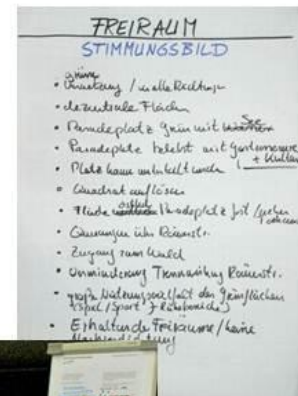 FREIRAUM
STIMMUNGSBILD
grüne
• Vernetzung / in alle Richtungen
• dezentrale Flächen
• Paradeplatz Grün mit See
• Paradeplatz belebt mit Gastronomie
+ Kultur
• Platz kann entwickelt werden
• Quadrat auflösen
• Fläche Paradeplatz
• Querungen über Römerstr.
• Zugang zum Wald
• Verminderung Trennwirkung Römerstr.
• große Nutzungsvielfalt der Grünflächen
(Spiel / Sport + Ruhebereiche)
• Erhalten der Freiräume / keine
Nachverdichtung